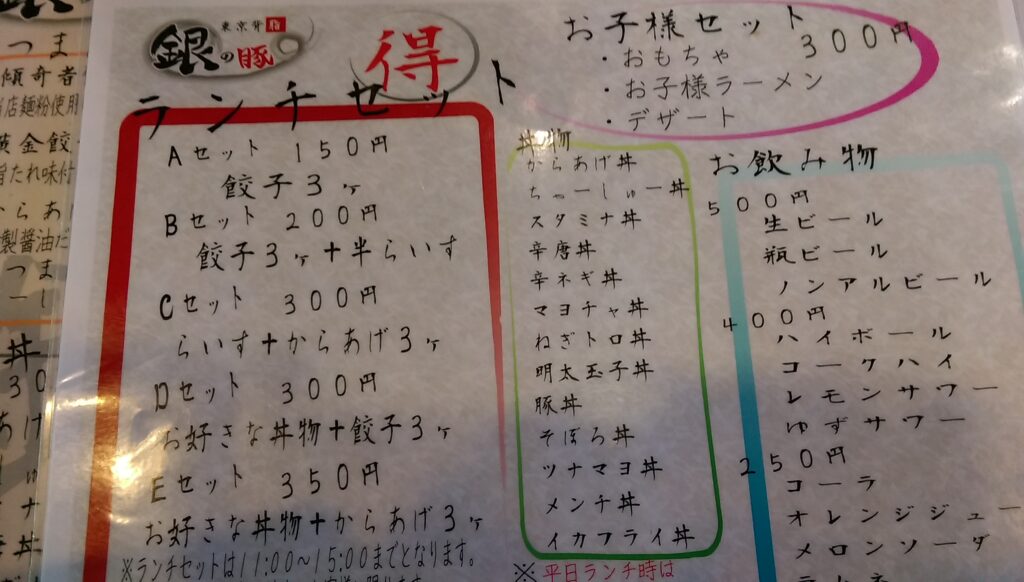 つま
傾奇者
店麺粉使用
黄金餃
旨たれ味付
からあ
製醤油だ
つま
丼
30
東京背脂
銀の豚
得
ランチセット
Aセット 150円
餃子3ヶ
Bセット 200円
餃子3ヶ+半らいす
Cセット 300円
らいす+からあげ3ヶ
Dセット 300円
お好きな丼物+餃子3ヶ
Eセット 350円
お好きな丼物+からあげ3ヶ
※ランチセットは11:00~15:00までとなります。
お子様セット
300円
・おもちゃ
・お子様ラーメン
・デザート
丼物
からあげ丼
ちゃーしゅー丼
スタミナ丼
辛唐丼
辛ネギ丼
マヨチャ丼
ねぎトロ丼
明太玉子丼
豚丼
そぼろ丼
ツナマヨ丼
メンチ丼
イカフライ丼
※平日ランチ時は
お飲み物
500円
生ビール
瓶ビール
ノンアルビール
400円
ハイボール
コークハイ
レモンサワー
ゆずサワー
250円
コーラ
オレンジジュー
メロンソーダ